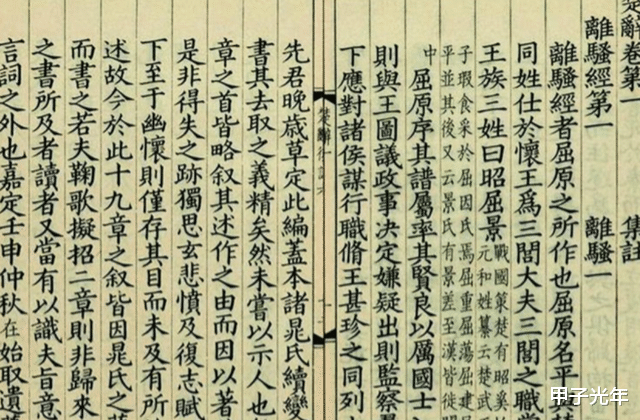 辭卷第一 集註
離騷經第一 離騷一
離騷經者屈原之所作也屈原名平
同姓仕於懷王爲三閭大夫三閭之職
王族三姓曰昭屈景戰國策楚有昭奚
元和姓纂云楚武
子瑕食采於屈因氏焉屈重屈蕩屈建
平並其後又云景氏有景差至漢皆徙
中
屈原序其譜屬率其賢良以厲國士
則與王圖議政事决定嫌疑出則監察
下應對諸侯謀行職脩王甚珍之同列
先君晚歲草定此編蓋本諸晁氏續
書其去取之義精矣然未嘗以示人也
章之首皆略叙其述作之由而因以著
是非得失之跡獨思玄悲憤及復志賦
下至于幽懷則僅存其目而未及有所
述故今於此十九章之叙皆因晁氏之
而書之若夫鞠歌擬招二章則非歸來
之書所及者讀者又當有以識夫旨意
言詞之外也嘉定壬申仲秋在始取遺
甲子光年